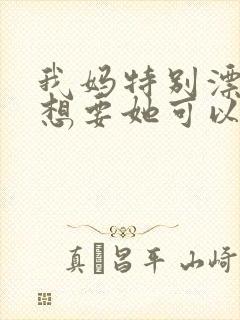 我妈特别漂
想要她可以
真 昌平 山崎